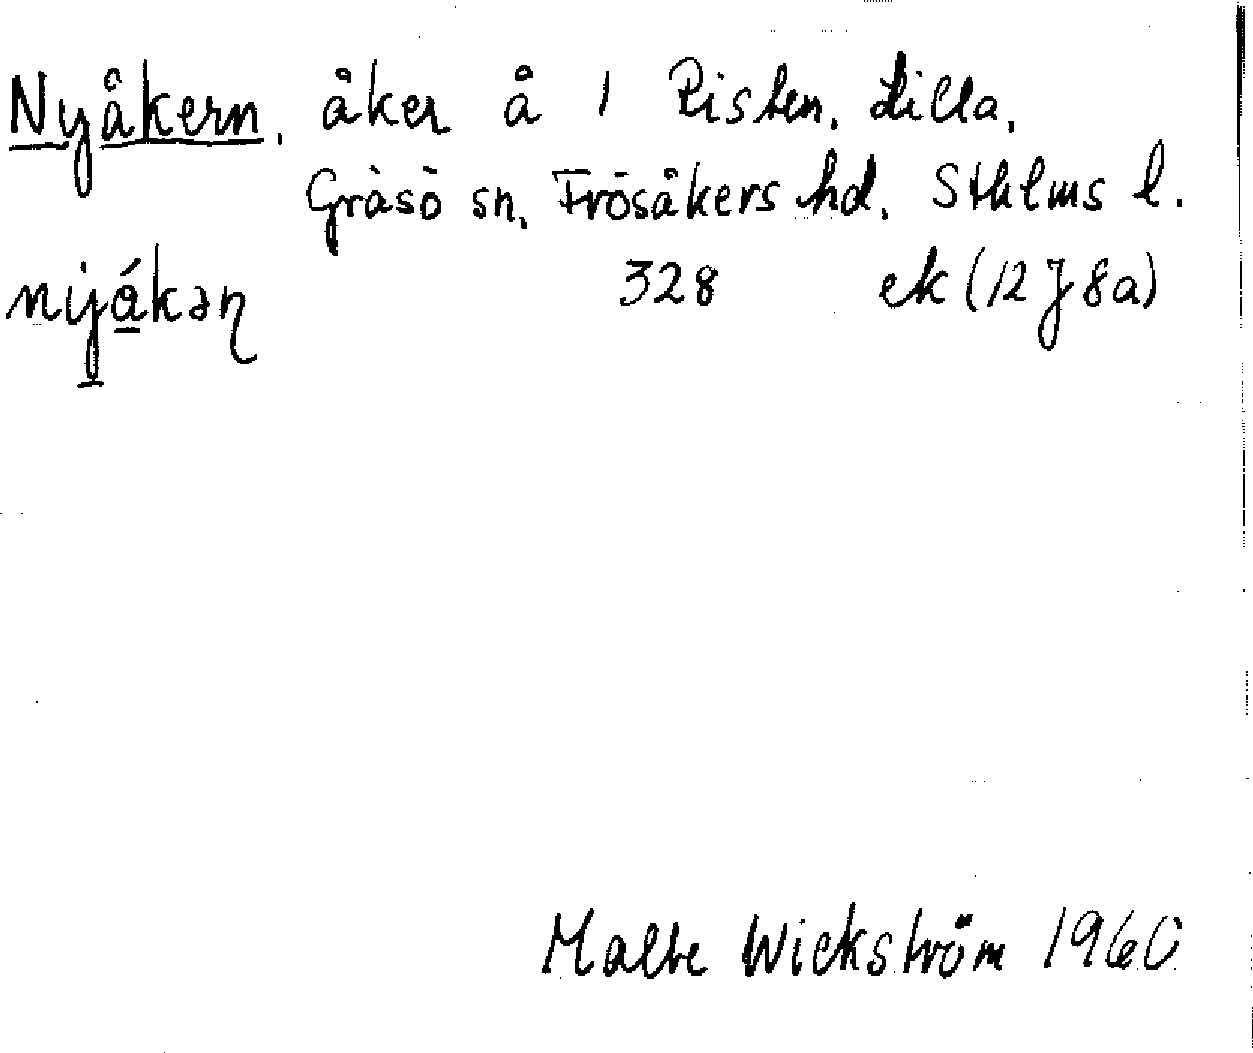 Nyåkern, åker å 1 Risten, Lilla,
Gräsö sn, Frösåkers hd, Sthlms l.
nyákəɳ 328 ek (12 J 8a)
Malte Wickström 1960